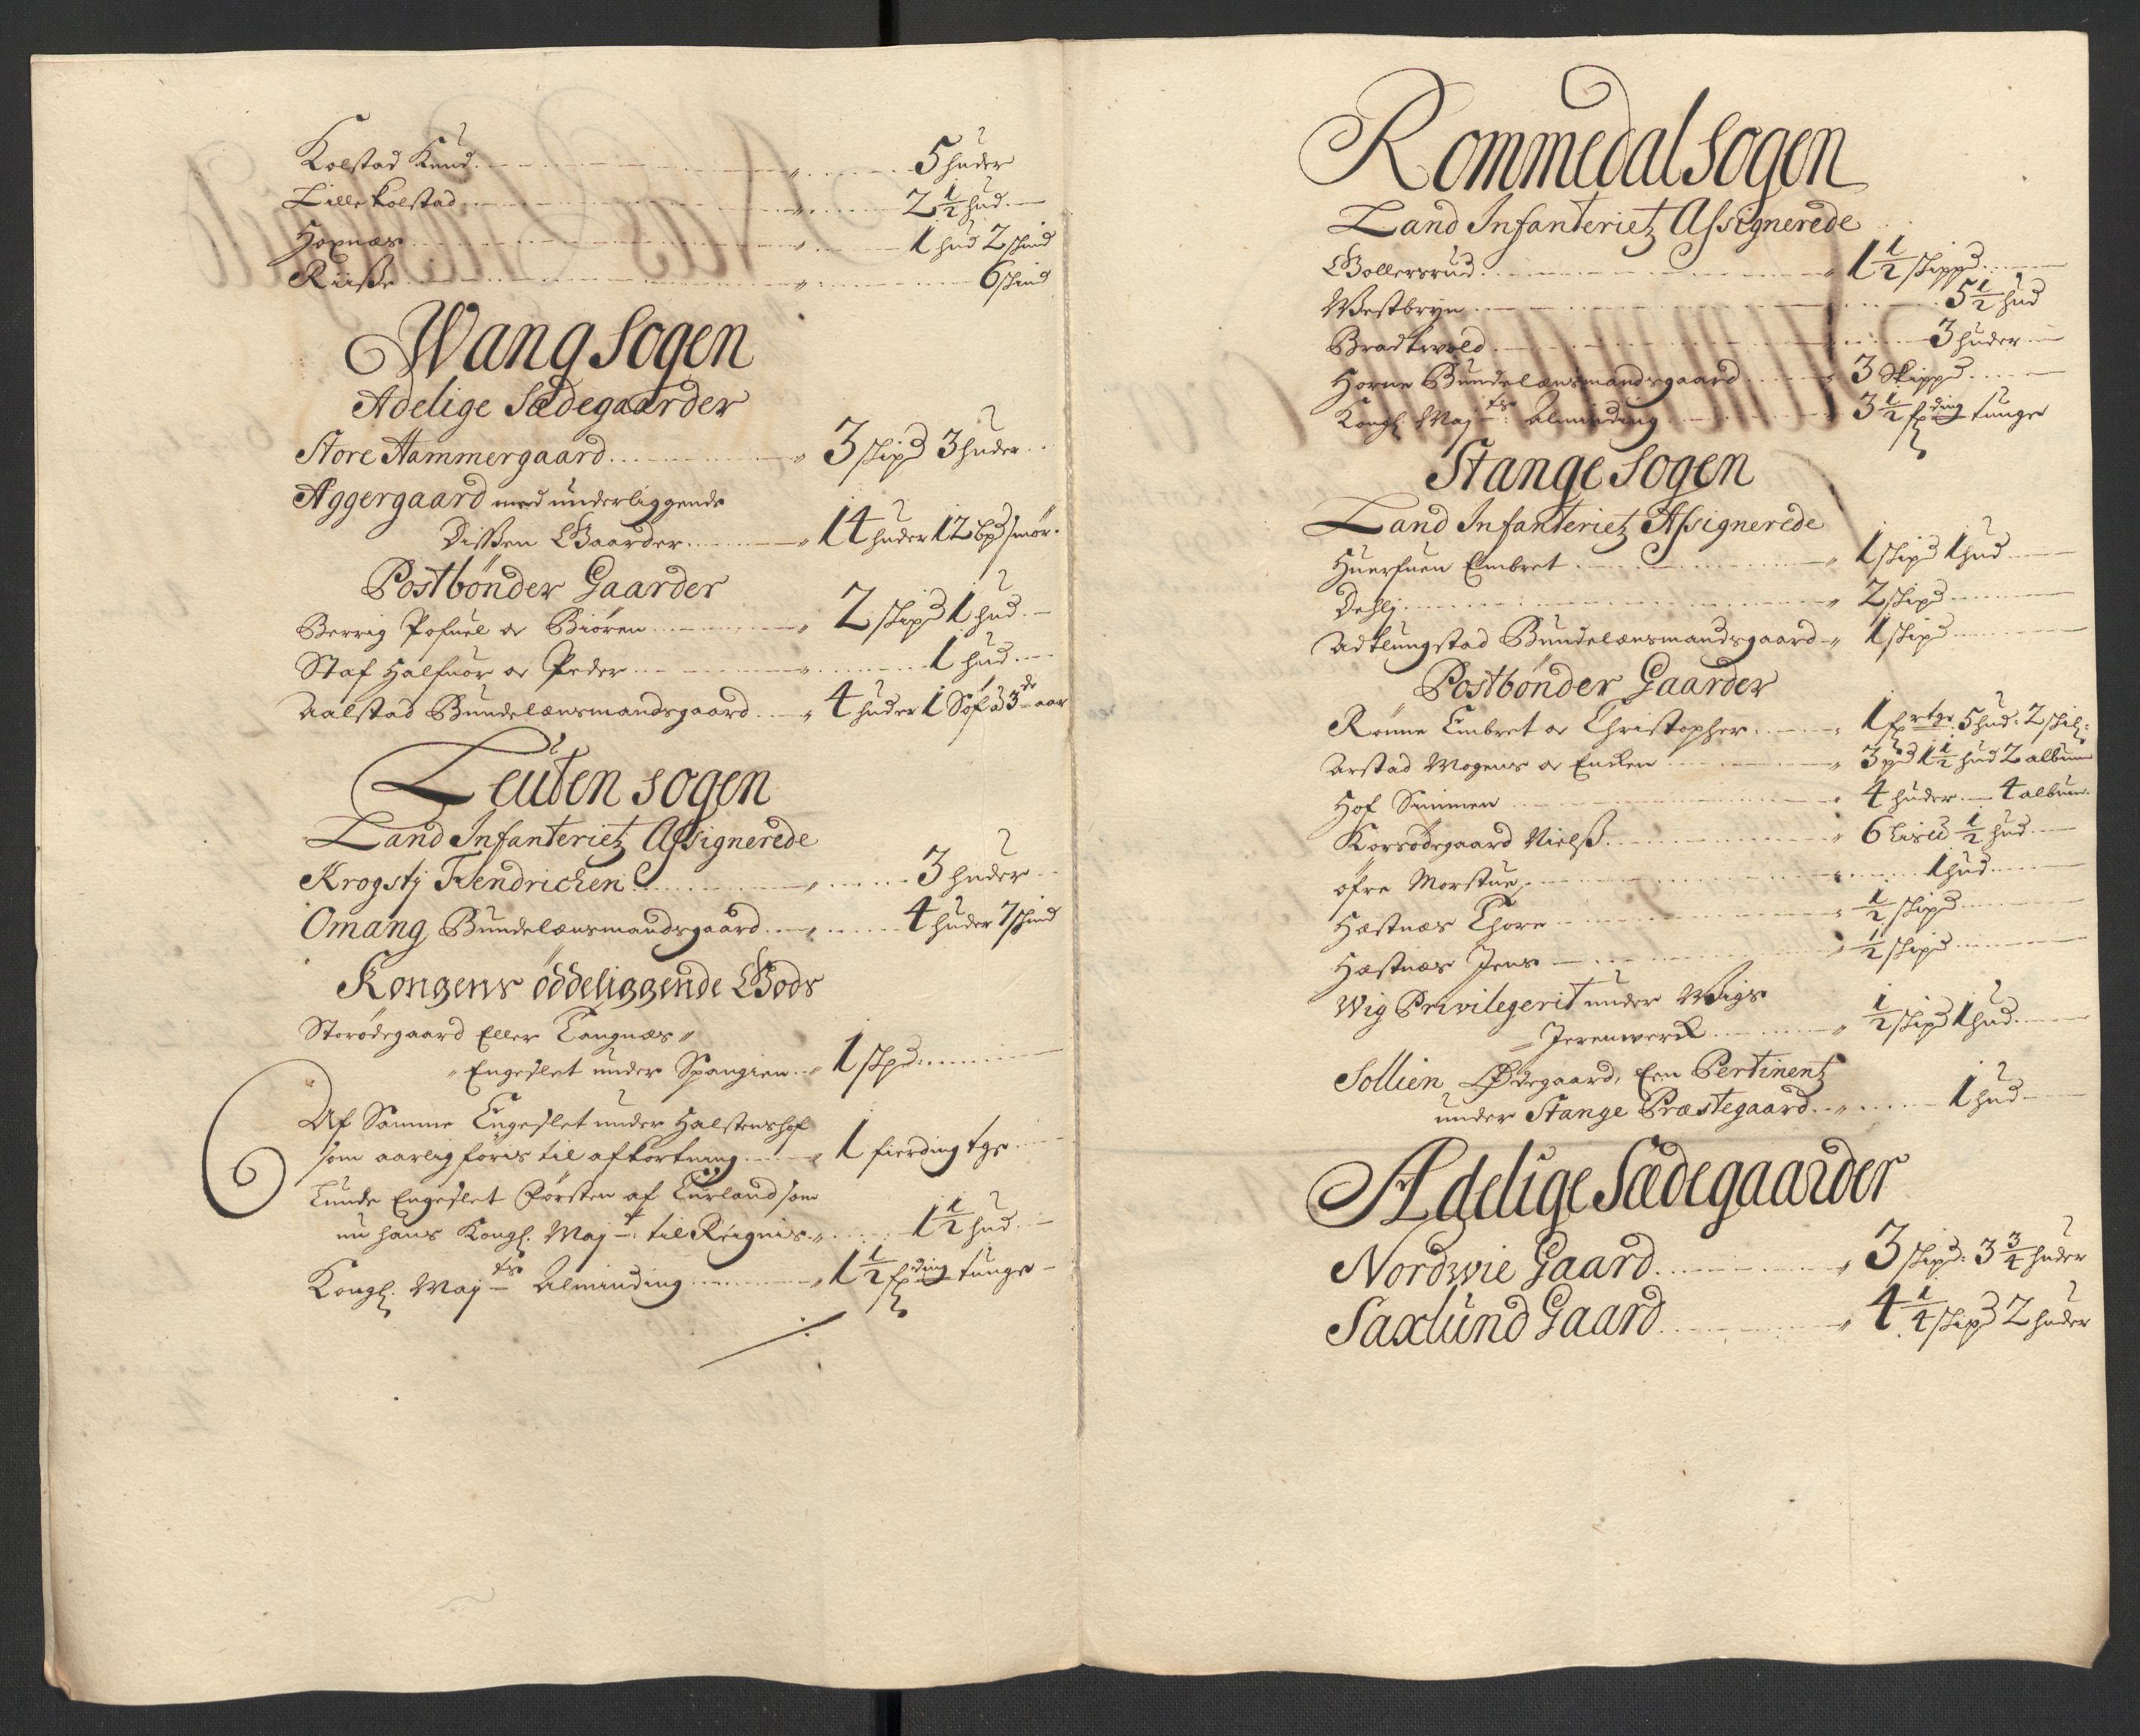 Kolstad Knud 5 huder
Lille Kolstad 2 1/2 hud
Hoxnæs 1 hud 2 skind
Riise 6 skind
Wang Sogen
Adelige Sædegaarder
Store Hammergaard 3 skipd 3 huder
Aggergaard med underliggende
Dissen Gaarder 14 huder 12 bpd smør
Postbönder Gaarder
Berrig Pofuel og Biören 2 skipd 1 hud
Staf Halfuor og Peder 1 hud
Aalstad Bundelænsmandsgaard 4 huder 1 3de aar
Leuten sogen
Land Infanteriet Assignerede
Krogstj Hendrichen 3 huder
Omang Bundelænsmandsgaard 4 huder 7 skind
Kongens öddeliggende Gods
Storödegaard Eller Tangnæs
Engeslet under Spangien 1 skpd
Af Samme Engeslet under Halstenshof
som aarlig föris til afkortning 1 fierding tge
Lunde Engeslet Försten af Curland som
nu hans Kongl. Mayt til Reignis 1 1/2 hud
Kongl. Mayts Alminding 1 1/2 fding tunge
Rommedal Sogen
Land Infanteriet Assignerede
Gollersrud 1 1/2 skippd
Westbryn 5 1/2 hud
Bradtwold 3 huder
Horne Bundelænsmandsgaard 3 Skippd
Kongl. Mayts Alminding 3 1/2 fding tunge
Stange Sogen
Land Infanteriet Assignerede
Huerfuen Embret 1 skipd 1 hud
Dehlj 2 skipd
Adtlungstad Bundelænsmandsgaard 1 skipd
Postbönder Gaarder
Rönne Embret og Christopher 1 5 hud 2 skil
Arstad Mogens og Encken 3 pd 1 1/2 hud 2 album
Hof Simmen 4 huder 4 album
Korsödegaard Nielss 6 1/2 hud
öfre Morstue 1 hud
Hæstnæs Thore 1/2 skipd
Hæstnæs Jens 1/2 skipd
Wig Privilegerit under Wigs
Jerenwerck 1/2 skipd 1 hud
Sollien Ödegaard, Een Pertinentz
under Stange Præstegaard 1 hud
Adelige Sædegaarder
Nordwie Gaard 3 skipd: 3 3/4 huder
Saxlund Gaard 4 1/4 skipd 2 huder